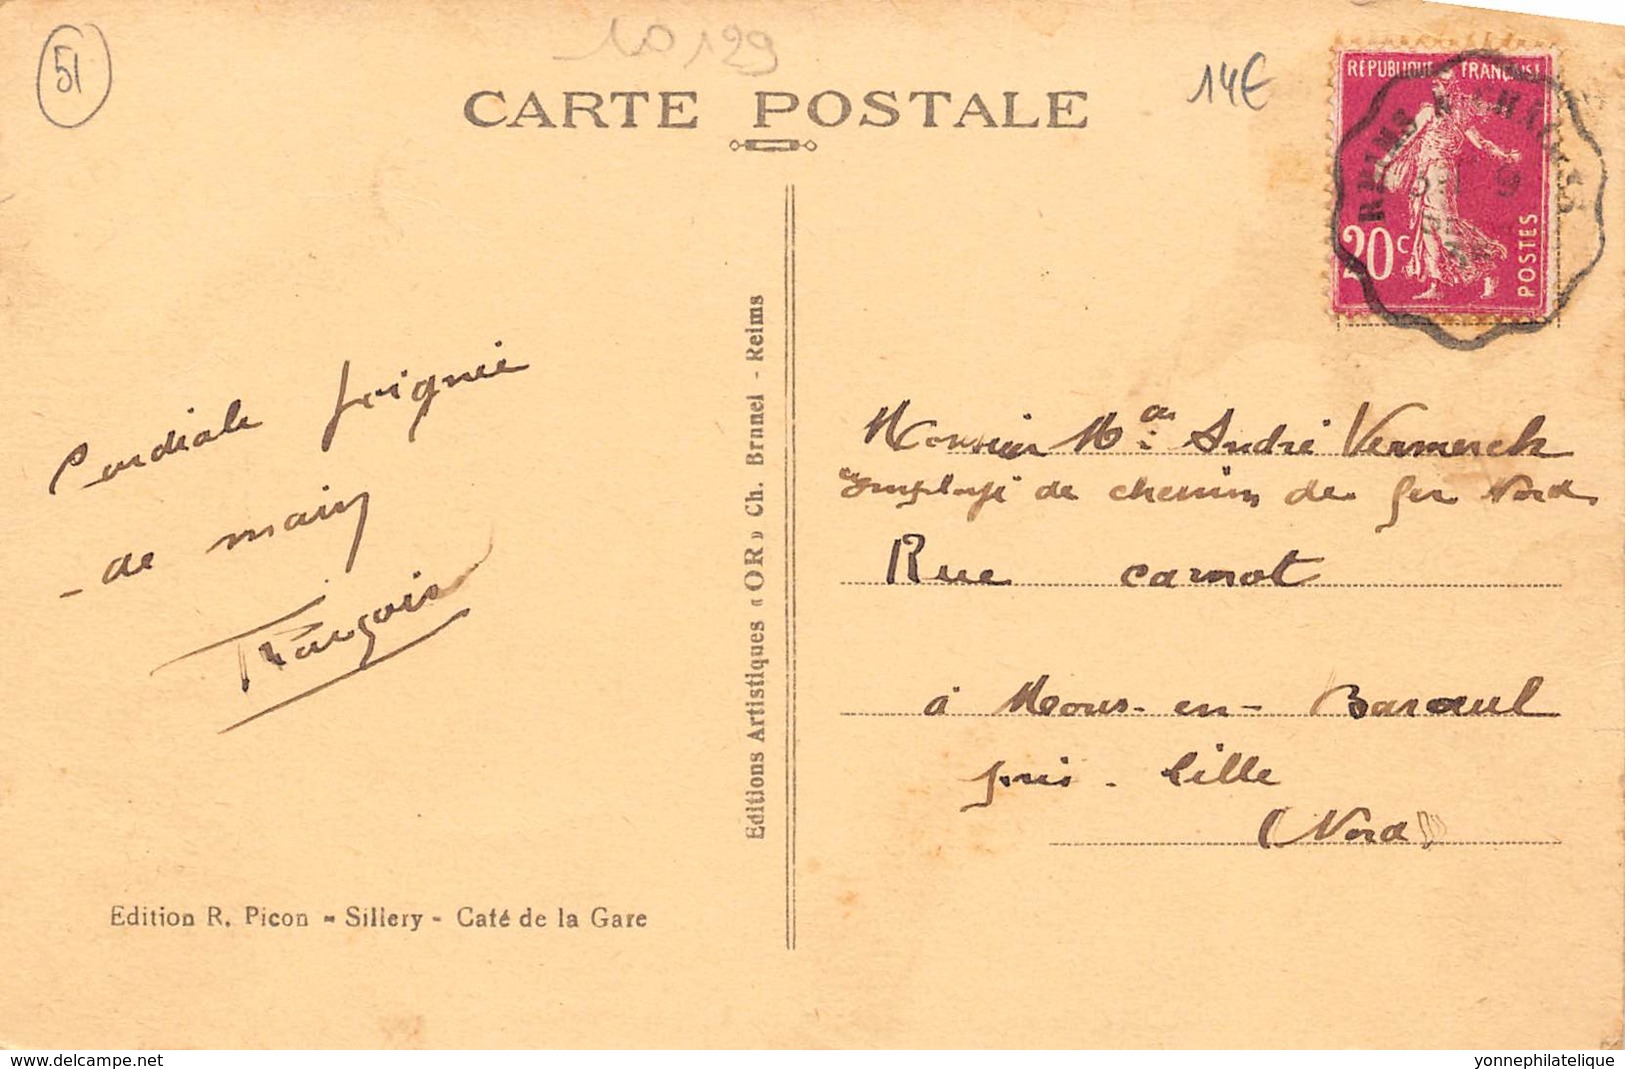 51
10129
14€
CARTE POSTALE
REPUBLIQUE FRANÇAISE
REIMS A CHALONS
20c
POSTES
Cordiale poignée
de main
François
Editions Artistiques « OR » Ch. Brunel - Reims
Monsieur Mme André Vermerck
employé de chemin de fer Nord
Rue Carnot
à Mons-en-Baroeul
près - Lille
(Nord)
Edition R. Picon - Sillery - Café de la Gare
www.delcampe.net
yonnephilatelique